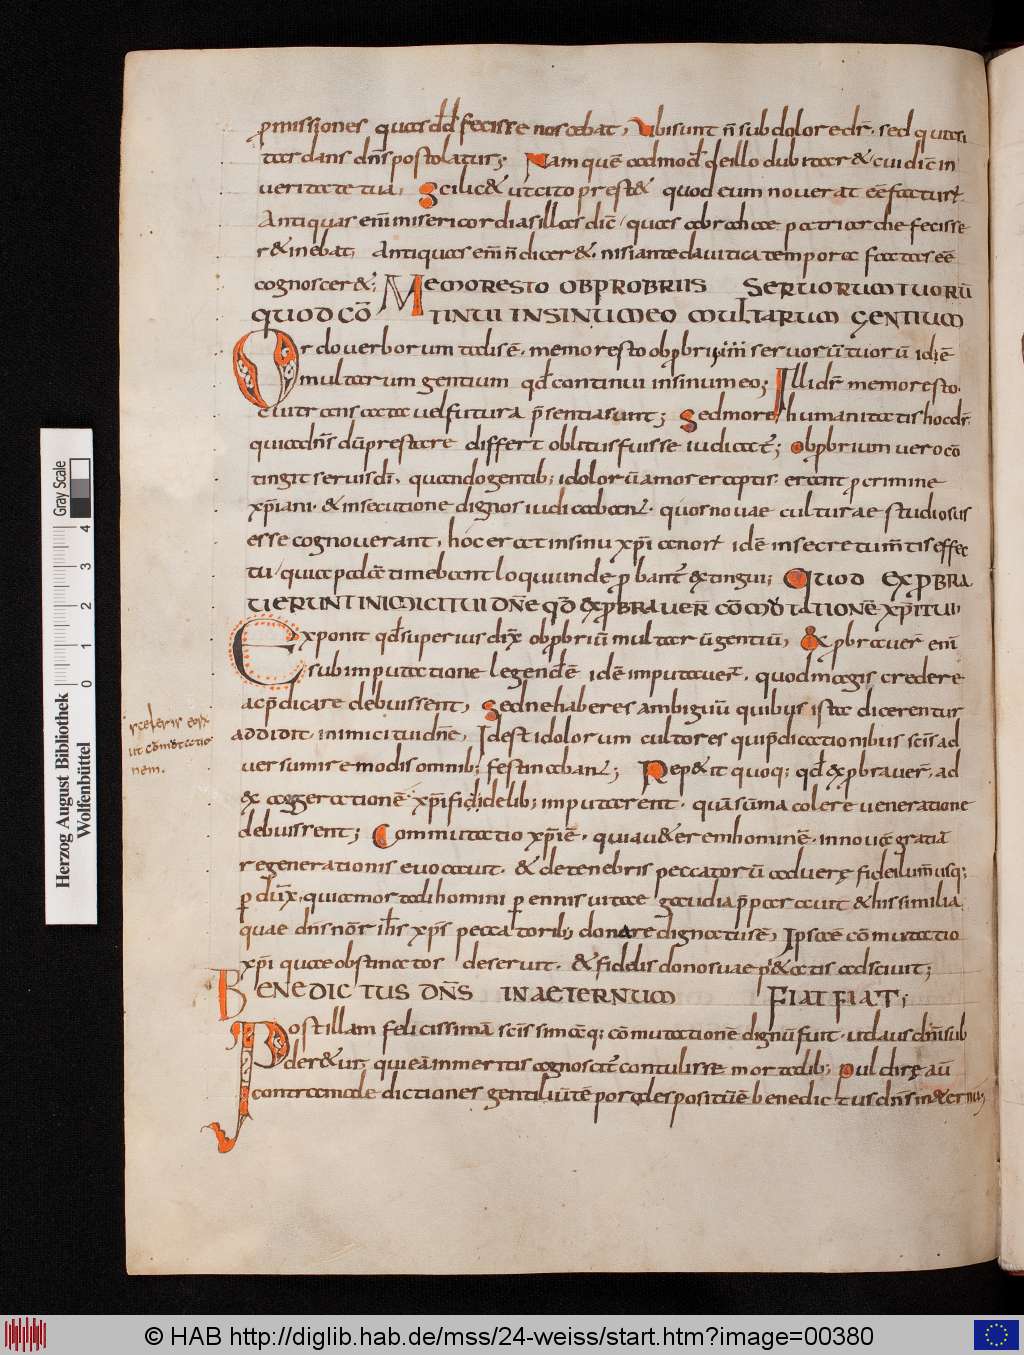 p̄missiones quas dd fecisse noscebat, Ubi sunt n̄ sub dolore dr̄. sed quasi
tar dans dn̄s postolatur; Nam quē admod̄ de illo dubitar& / cui dic̄ in
veritate tua, Scilic& ut cito prest& quod eum noverat eē facturū
Antiquas em̄ misericordias illas dic̄ / quas abrahae patriarche fecisse
r&inebat, Antiquas em̄ n̄ dicer&. nisi ante davitica tempora factas eē
cognoscer&; MEMOR ESTO OBPROBRIIS SERVORUM TUORŪ
QUOD CŌ TINUI IN SINU MEO MULTARUM GENTIUM
Ordo verborum talis ē. memor esto obp̄brii servorū tuorū id ē
multarum gentium qd̄ continui in sinu meo; Illi dr̄ memor esto.
cui transacta vel futura p̄sentia sunt; Sed more humanitatis hoc dr̄
quia dn̄s dū prestare differt oblitus fuisse iudicat̄; Obp̄brium vero cō
tingit servis dī, quando gentib; idolorū amore captis. erant p crimine
xp̄iani. & insecutione dignos iudicabant̄. quos novae culturae studiosus
esse cognoverant, hoc erat in sinu xp̄i idē in secretum tis effec
tu / quia palā timebant loqui unde p̄bant̄ extingui; QUOD EXPBRA
VERUNT INIMICI TUI DN̄E QD̄ EXPBRAVER̄ CŌMUTATIONĒ XP̄I TUI
Exponit qd̄ superius dix̄ obp̄briū multarū gentiū, Exp̄braver̄ em̄
sub imputatione legend̄ ē idē imputaver̄. quod magis credere
ac p̄dicare debuissent, Sed ne haberes ambiguū quibus ista dicerentur
addidit. inimici tui dn̄e, Id est idolorum cultores qui p̄dicationibus sc̄is ad
versum ire modis omnib; festinaban̄t; Rep&it quoq; qd̄ exp̄braver̄, ad
exaggerationē xp̄i fidelib; imputarent. quā sūma colere veneratione
debuissent; Commutatio xp̄i ē. quia v&erem hominē. in novā gratiā
regenerationis evocavit. & de tenebris peccatorū ad verę fidei lum̄ usq;
p̄dux̄, quia mortali homini pennis vitae gaudia p̄paravit & his similia
quae dn̄s nōr ih̄s xp̄s peccatorib; donare dignatus ē, Ipsā ē cōmutatio
xp̄i quae obstinatos deseruit. & fidelis dono suae pi&atis adscivit;
BENEDICTUS DN̄S IN AETERNUM FIAT FIAT;
Post illam felicissimā sc̄issimāq; cōmutationē dignū fuit. ut laus dn̄i sub
der&ur, qui eā in meritis agnoscit̄ contulisse mortalib; Pulchrę aū
contra maledictiones gentiliū tēporędes positū ē benedictus dn̄s in &ernū;
rceleris
ut cōmutatio
nem.
Herzog August Bibliothek
Wolfenbüttel
0 1 2 3 4
Gray Scale
© HAB http://diglib.hab.de/mss/24-weiss/start.htm?image=00380